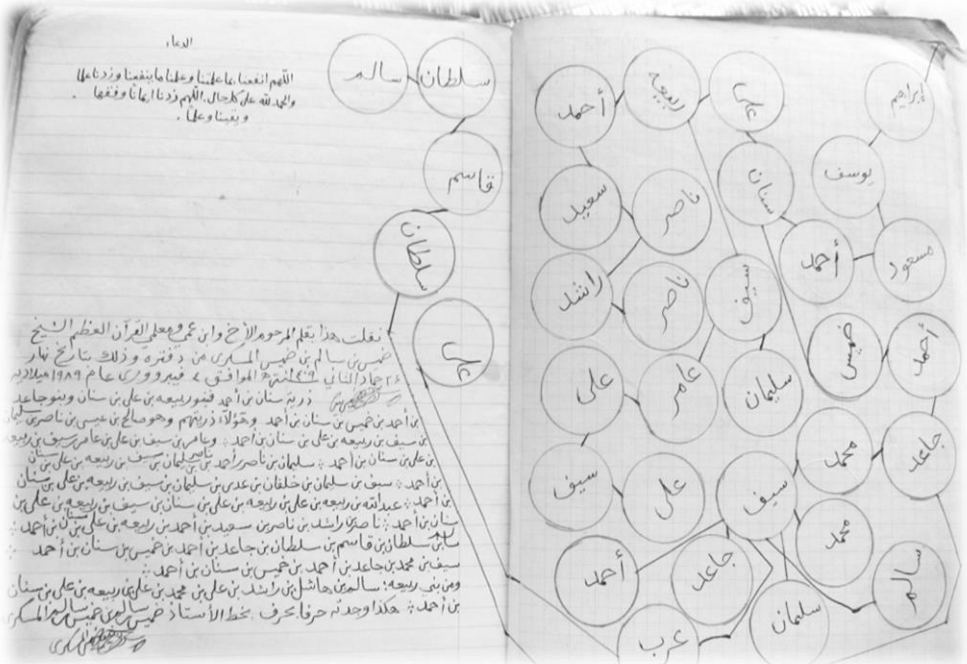 الدعاء
اللهم انفعنا بما علمتنا وعلمنا ما ينفعنا وزدنا علما
والحمد لله على كل حال، اللهم زدنا إيمانا وفقها
ويقينا وعلما.
سلطان
سالم
قاسم
سلطان
علي
نقلت هذا بقلم المرحوم الأخ وابن عمي ومعلمي القرآن العظيم الشيخ
خميس بن سالم بن خميس المسكري من دفتره وذلك بتاريخ نهار
٢٦ جماد الثاني الموافق فبروري عام ١٩٨٩ ميلادية
ذرية سنان بن أحمد فبنو ربيعه بن علي بن سنان وبنو جاعد
بن أحمد بن خميس بن سنان بن أحمد وهؤلاء ذريتهم وهو صالح بن عيسى بن ناصر بن سليمان
بن سيف بن ربيعه بن علي بن سنان بن أحمد وعامر بن سيف بن علي بن عامر بن سيف بن ربيعه
بن علي بن سنان بن أحمد سليمان بن ناصر بن أحمد بن ناصر بن سليمان بن سيف بن ربيعه بن علي بن سنان
بن أحمد سيف بن سليمان بن خلفان بن عدي بن سليمان بن سيف بن ربيعه بن علي بن سنان
بن أحمد عبدالله بن ربيعه بن علي بن ربيعه بن علي بن سنان بن سيف بن ربيعه بن علي بن
سنان بن أحمد ناصر بن راشد بن ناصر بن سعيد بن أحمد بن ربيعه بن علي بن سنان بن أحمد
سالم بن سلطان بن قاسم بن سلطان بن جاعد بن أحمد بن خميس بن سنان بن أحمد
سيف بن محمد بن جاعد بن أحمد بن خميس بن سنان بن أحمد
ومن بني ربيعه: سالم بن هاشل بن راشد بن علي بن محمد بن علي بن ربيعه بن علي بن سنان
بن أحمد هكذا وجدته حرفا بحرف بخط الأستاذ خميس بن سالم بن خميس بن سالم المسكري
إبراهيم
علي
ربيعه
أحمد
يوسف
سنان
ناصر
سعيد
مسعود
أحمد
سيف
ناصر
راشد
أحمد
خميس
سليمان
عامر
علي
جاعد
محمد
سيف
علي
سيف
محمد
سالم
جاعد
أحمد
سليمان
عرب